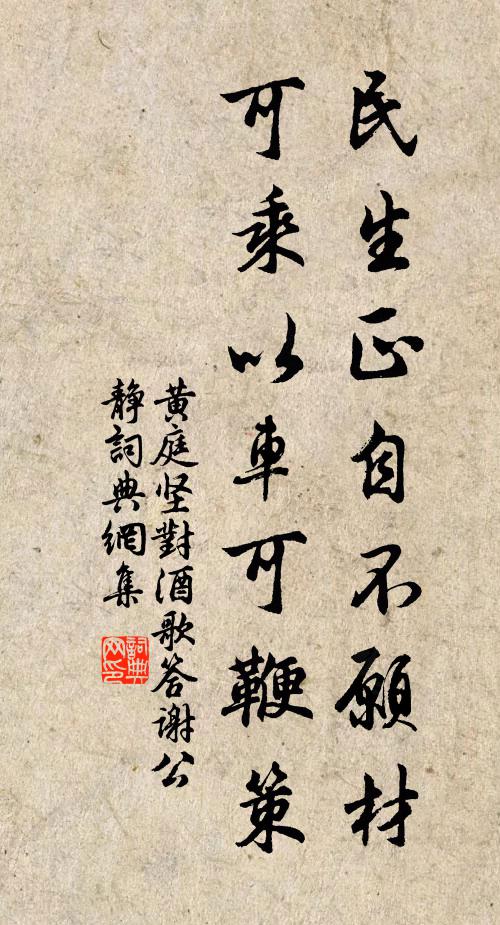 民生正自不願材
可乘以車可鞭策
黄庭坚對酒歌答谢公
靜詞典網集
詞典
网印